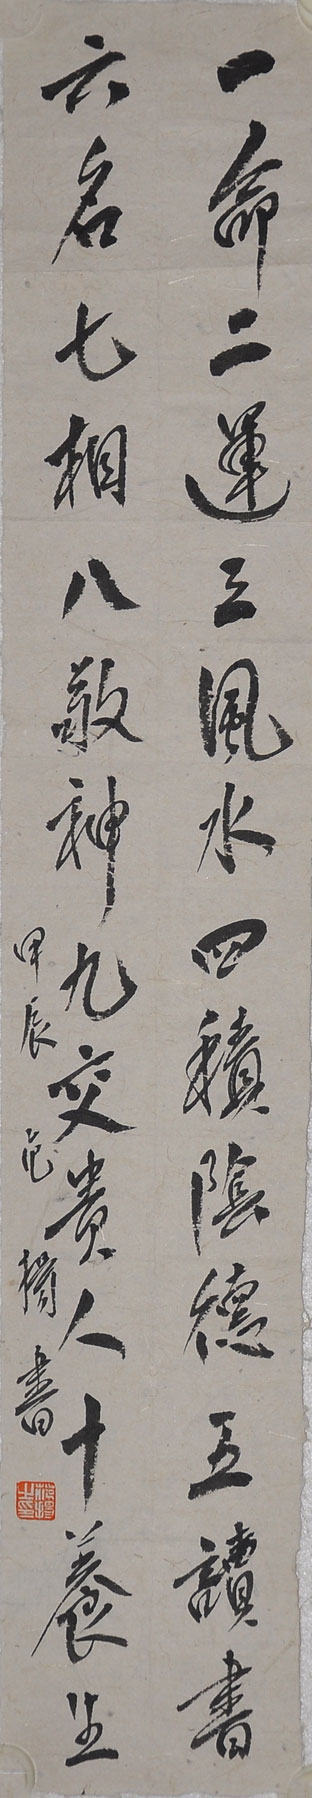 一命二運三風水四積陰德五讀書
六名七相八敬神九交貴人十養生
甲辰 書